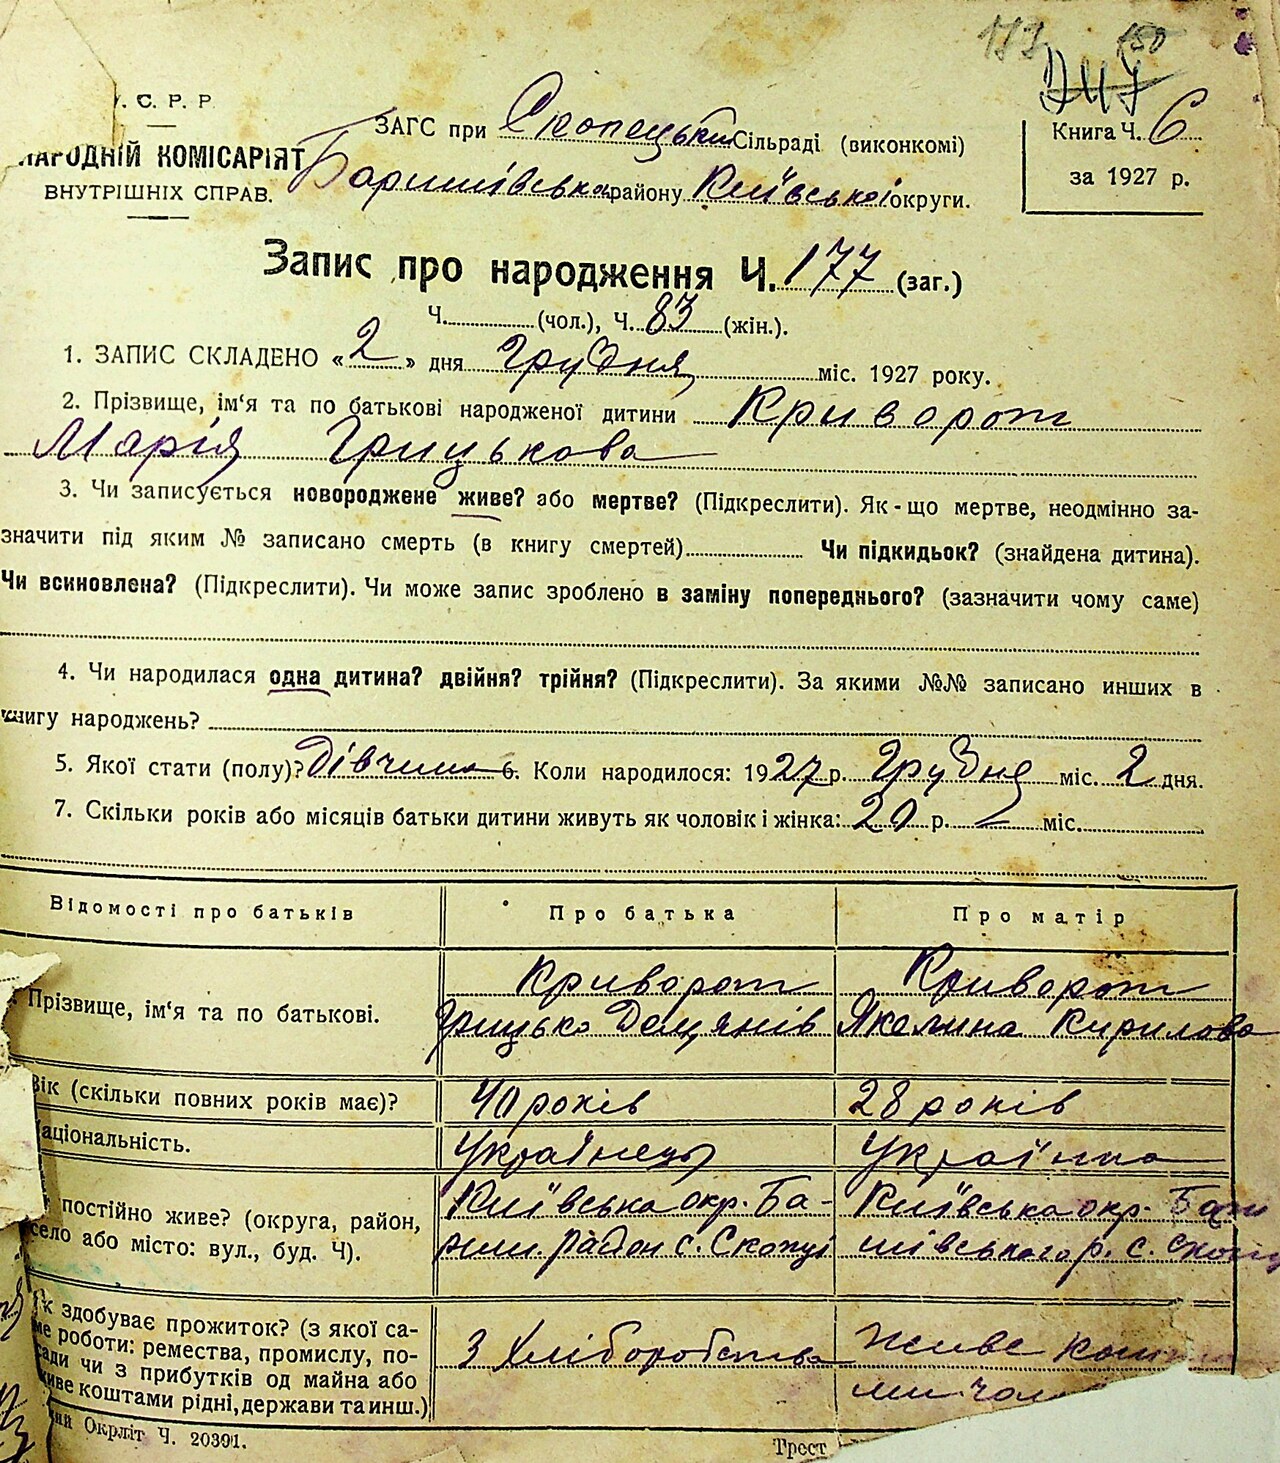 173 150
247
. С. Р. Р.
НАРОДНІЙ КОМІСАРІЯТ
ВНУТРІШНІХ СПРАВ.
ЗАГС при Скопецькій Сільраді (виконкомі)
Баришівського району Київської округи.
Книга Ч. 6
за 1927 р.
Запис про народження Ч. 177 (заг.)
Ч. (чол.), Ч. 83 (жін.).
1. ЗАПИС СКЛАДЕНО «2» дня Грудня міс. 1927 року.
2. Прізвище, ім‘я та по батькові народженої дитини Криворот
Марія Грицькова
3. Чи записується новороджене живе? або мертве? (Підкреслити). Як-що мертве, неодмінно за-
значити під яким № записано смерть (в книгу смертей) Чи підкидьок? (знайдена дитина).
Чи всиновлена? (Підкреслити). Чи може запис зроблено в заміну попереднього? (зазначити чому саме)
4. Чи народилася одна дитина? двійня? трійня? (Підкреслити). За якими №№ записано инших в
книгу народжень?
5. Якої стати (полу)? Дівчина 6. Коли народилося: 1927 р. Грудня міс. 2 дня.
7. Скільки років або місяців батьки дитини живуть як чоловік і жінка: 20 р. – міс.
Відомості про батьків Про батька Про матір
Прізвище, ім‘я та по батькові. Криворот Криворот
Грицько Демянів Якелина Кирилова
Вік (скільки повних років має)? 40 років 28 років
Національність. Українець Українка
постійно живе? (округа, район, Київська окр. Ба- Київська окр. Бари
село або місто: вул., буд. Ч). риш. район с. Скопці шівського р. с. Скопц
Як здобуває прожиток? (з якої са-
ме роботи: ремества, промислу, по-
сади чи з прибутків од майна або З Хліборобства живе кошт
живе коштами рідні, держави та инш.) ми чол
Окрліт Ч. 20391.
Трест